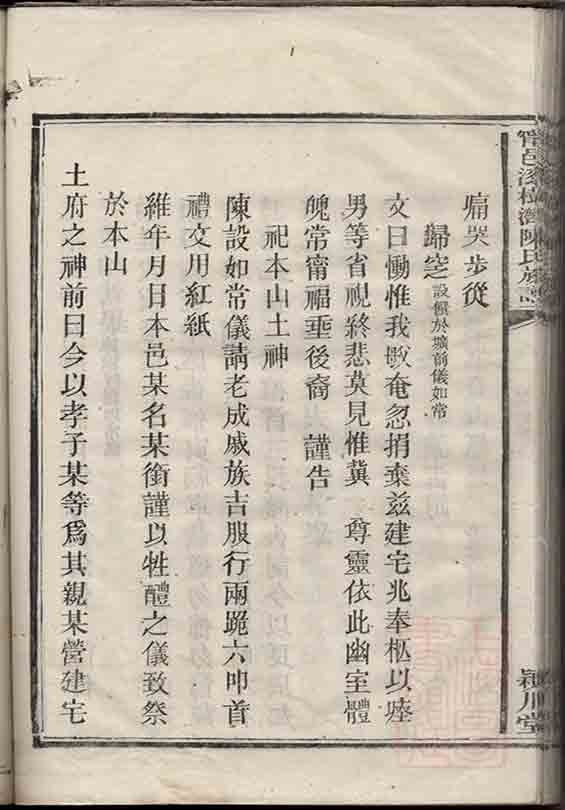 痛哭步從
歸窆設饌於壙前儀如常
文曰慟惟我 奄忽捐棄玆建宅兆奉柩以痤
男等省視終悲莫見惟冀 尊靈依此幽室體
魄常甯福垂後裔 謹告
祀本山土神
陳設如常儀請老成戚族吉服行兩跪六叩首
禮文用紅紙
維年月日本邑某名某銜謹以牲醴之儀致祭
於本山
土府之神前曰今以孝子某等爲其親某營建宅
甯邑 陳氏族譜
潁川堂